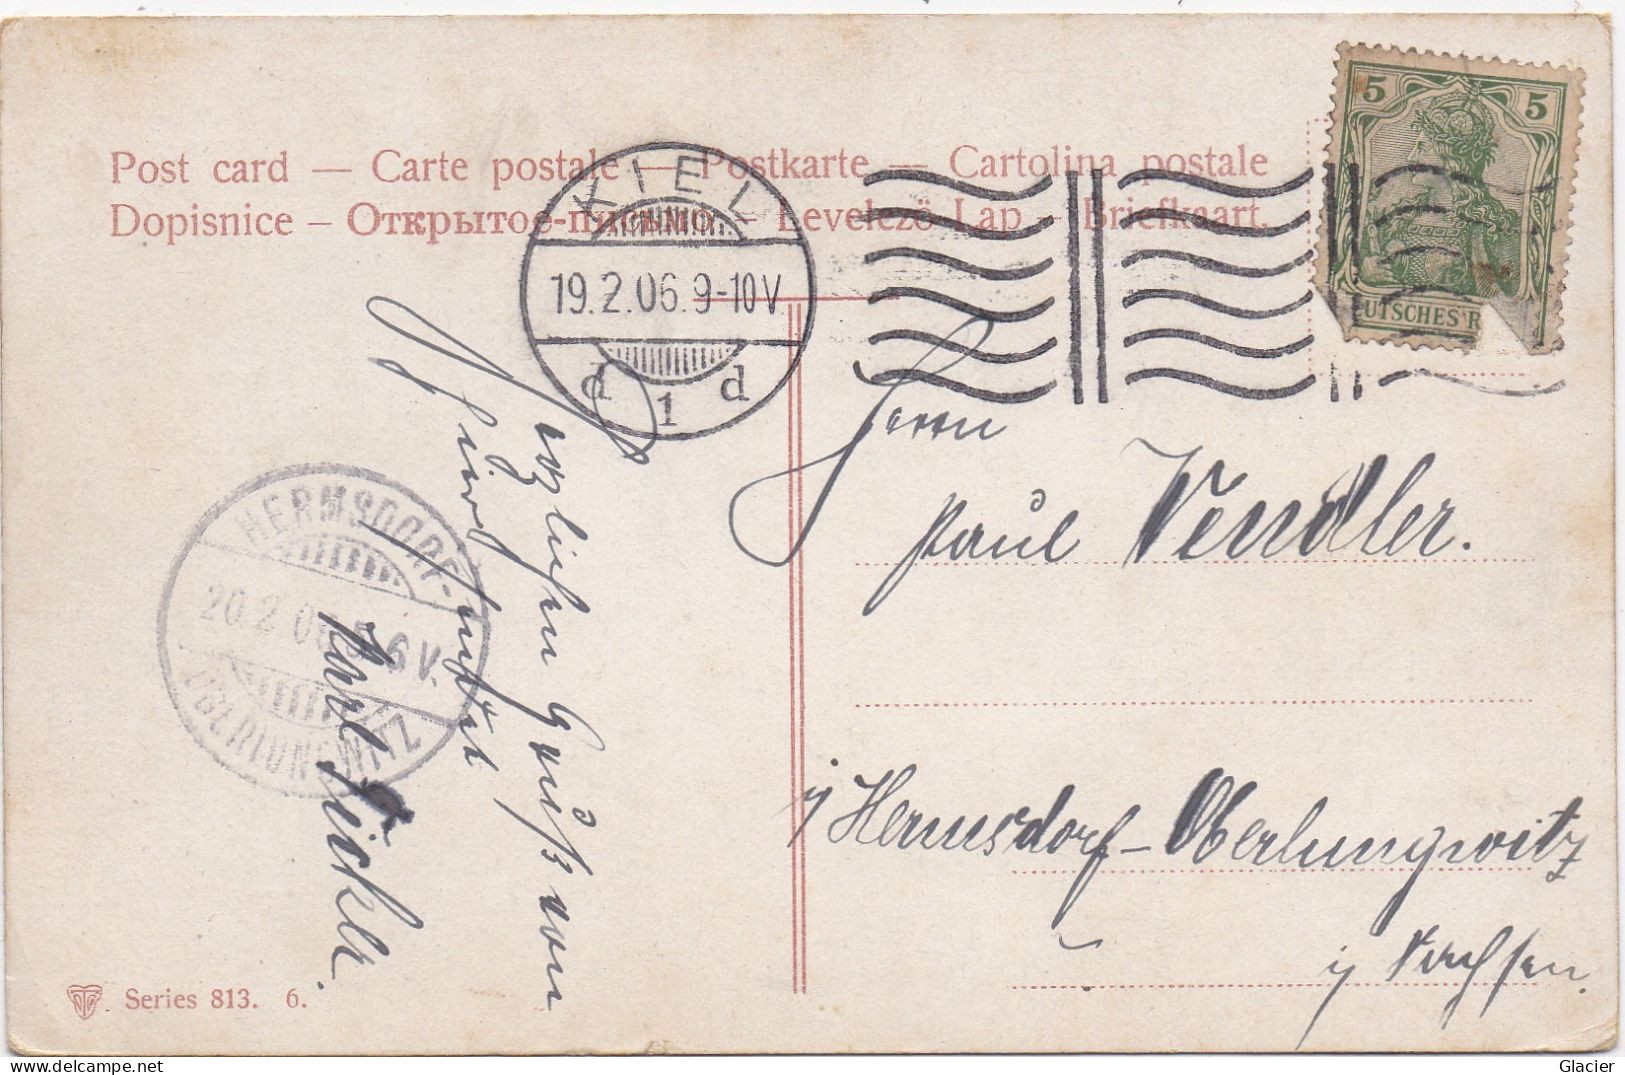 Post card — Carte postale — Postkarte — Cartolina postale
Dopisnice – Открытое-письмо – Levelező Lap – Briefkaart.
KIEL
19.2.06.9-10V
d 1 d
5 5
DEUTSCHES R
Herrn
Paul Vendler.
Hermsdorf-Oberlungwitz
Sachsen.
HERMSDORF-
20.2.06 5-6V.
OBERLUNGWITZ
Herzlichen Gruß von
Karl
Series 813. 6.
Glacier